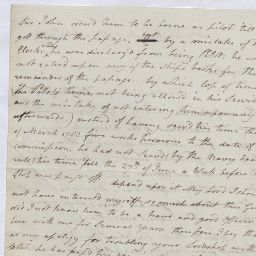 Sir John order'd him to be borne as Pilot till
got through the passage, by a mistake of the
Clerks, he was discharg'd from being Pilot, he w
not enter'd upon any of the Ships books for the
remainder of the passage. by which loss of time
the Pilots time not being allowed in his Servi
and the mistake of not entering him
afterwards) instead of having serv'd his time the
of March 1783 five weeks before to the date of
commission, he had not serv'd by the Navy boa
rules this time till the 27th of June a Week before
Ship was paid off. depend upon it My Lord I shou
not have interested myself so much about this G
did I not know him to be a brave and good Officer
been with me for several years therefore I pray tha
as my apology for troubling your Lordship with
letter, he has passed his